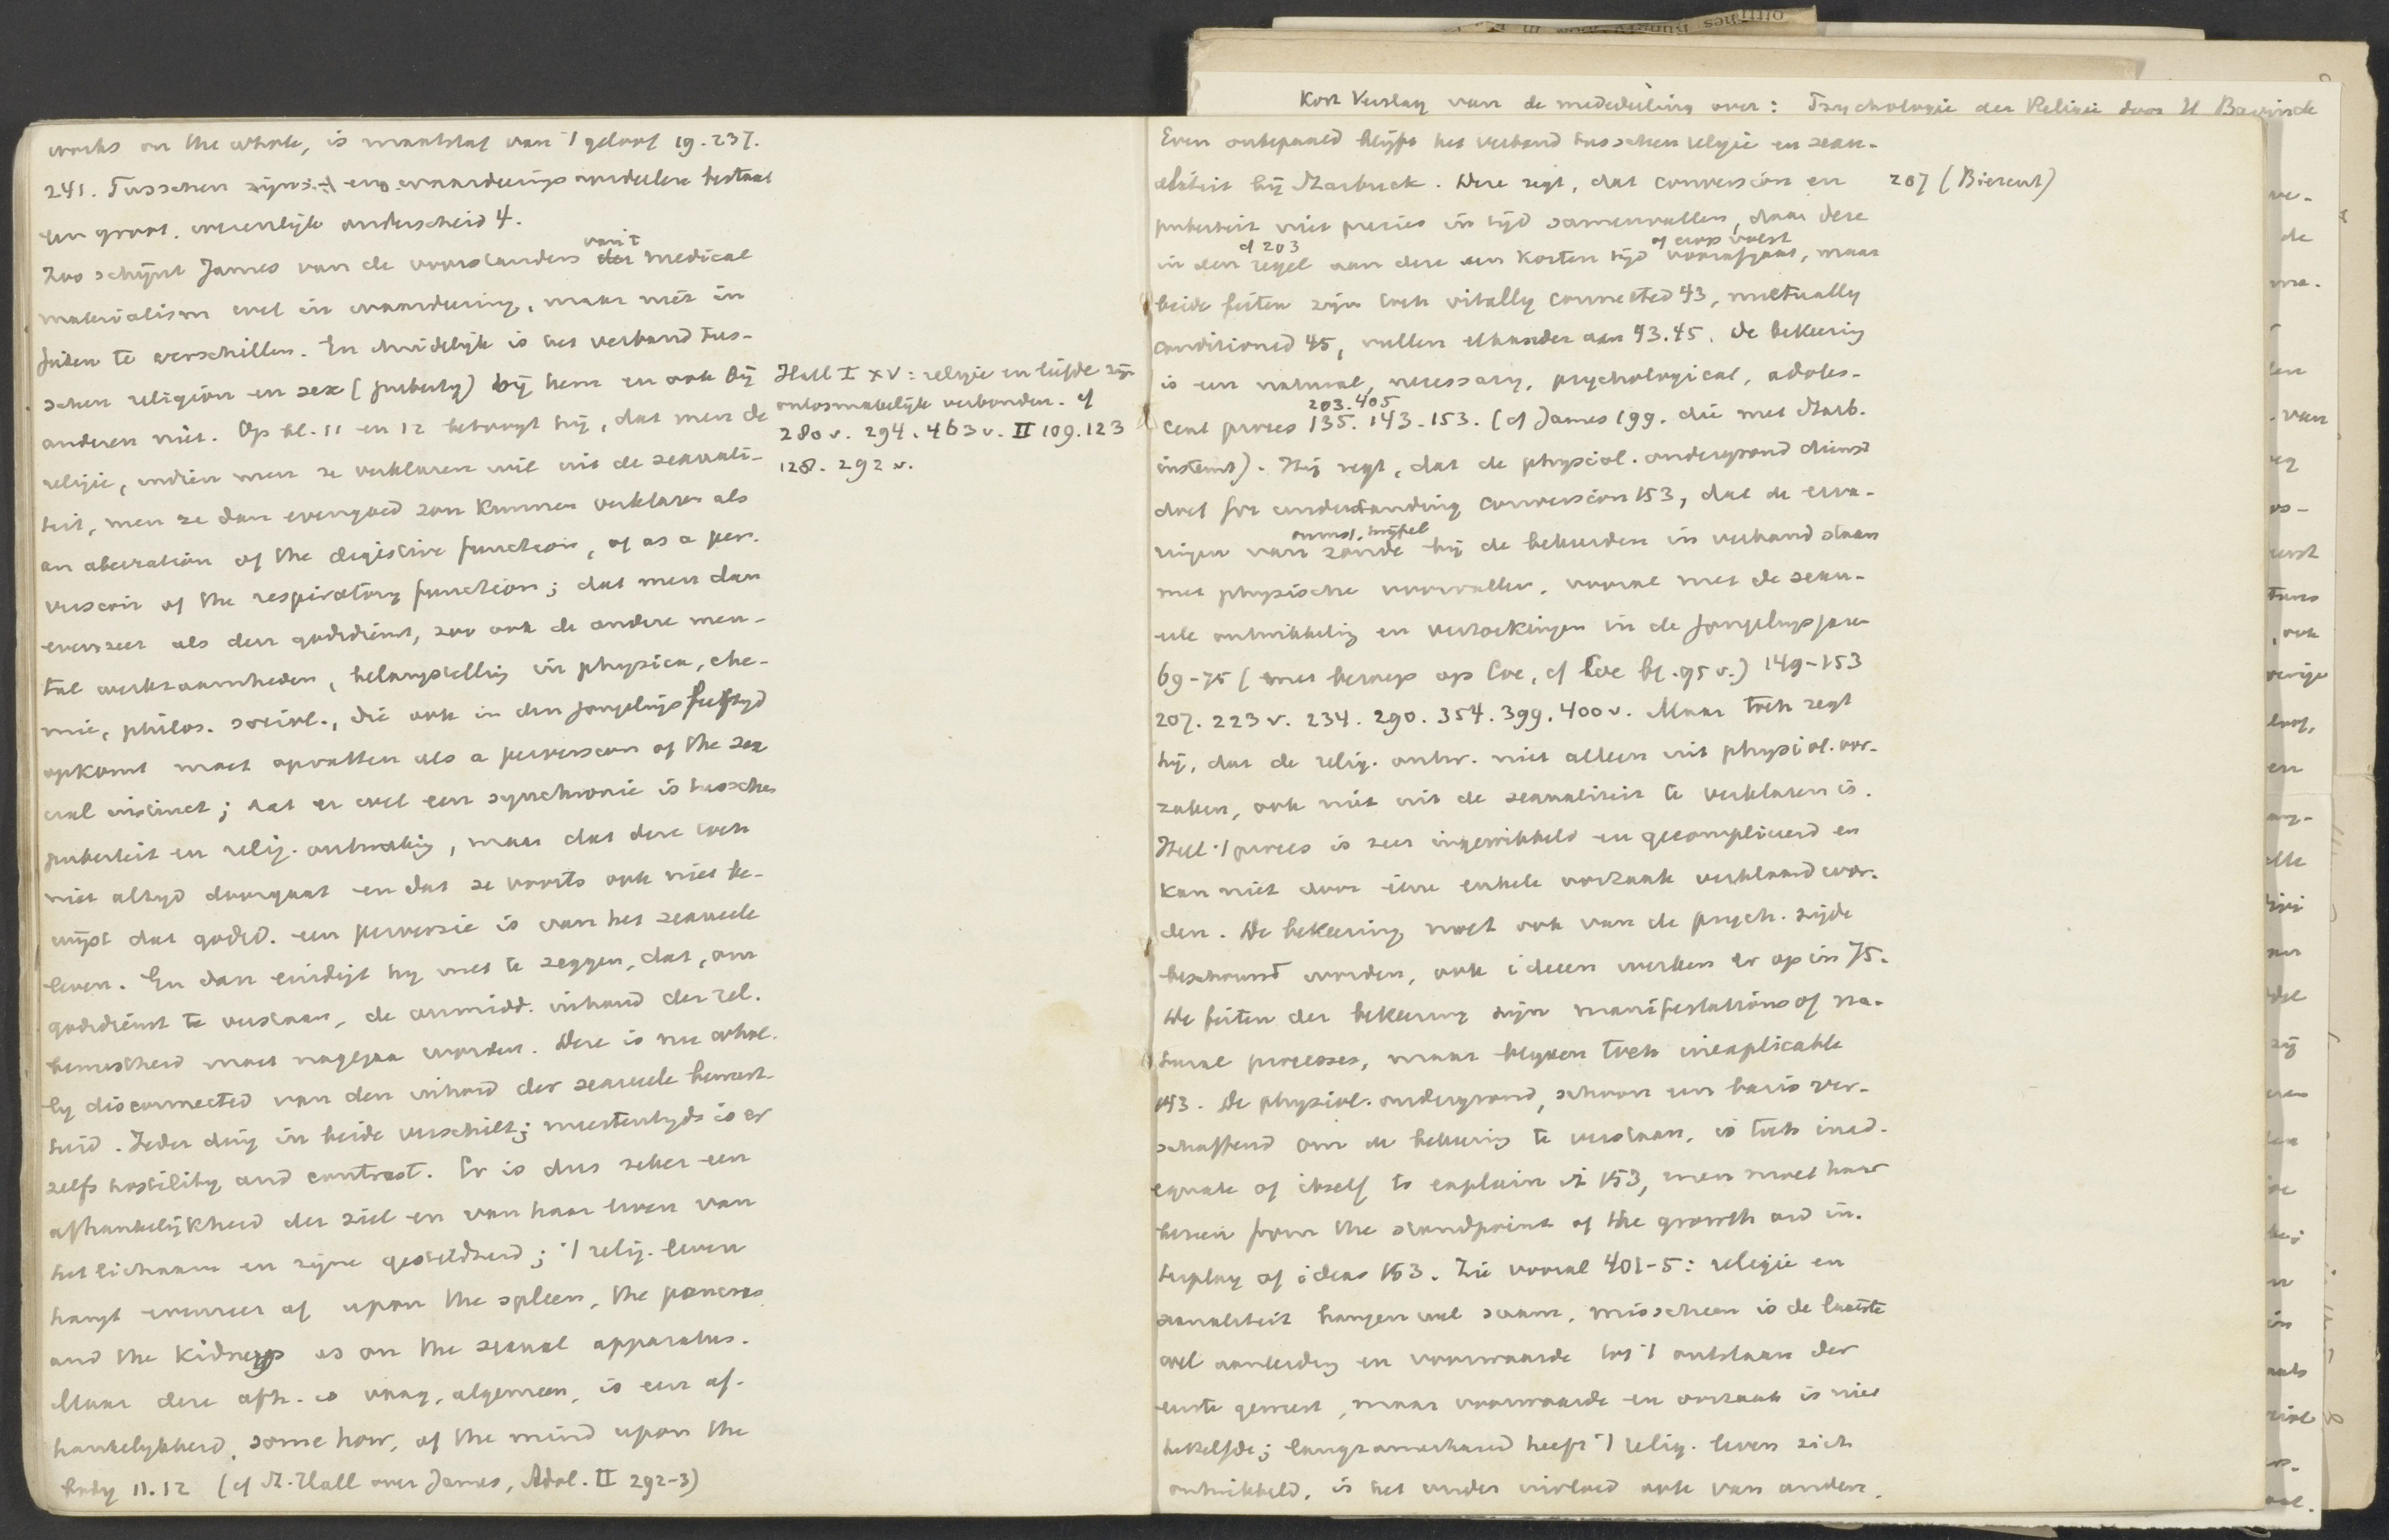 Kort Verslag van de mededeeling over: Psychologie der Religie door H Bavinck
works on the whole, is maatstaf van 't geloof 19. 237.
241. Tusschen zijns- en waardeeringsoordeelen bestaat
een groot, wezenlijk onderscheid 4.
Zoo schijnt James van de voorstanders van 't medical
materialism wel in waardeering, maar niet in
feiten te verschillen. En duidelijk is het verband tus-
schen religion en sex (puberty) bij hem en ook bij
anderen niet. Op bl. 11 en 12 betoogt hij, dat men de
religie, indien men ze verklaren wil uit de sexuali-
teit, men ze dan evengoed zou kunnen verklaren als
an aberration of the digestive function, of as a per-
version of the respiratory function; dat men dan
evenzeer als den godsdienst, zoo ook de andere men-
tal werkzaamheden, belangstelling in physica, che-
mie, philos. sociol., die ook in den jongelingsleeftijd
opkomt moet opvatten als a perversion of the sex
ual instinct; dat er wel een synchronie is tusschen
puberteit en relig. ontwakig, maar dat deze toch
niet altijd doorgaat en dat ze voorts ook niet be-
wijst dat godsd. een perversie is van het sexueele
leven. En dan eindigt hij met te zeggen, dat, om
godsdienst te verstaan, de onmidd. inhoud der rel.
bewustheid moet nagegaan worden. Deze is nu whol-
ly disconnected van den inhoud der sexueele bewust-
heid. Ieder ding in beide verschilt; meestentijds is er
zelfs hostility and contrast. Er is dus zeker een
afhankelijkheid der ziel en van haar leven van
het lichaam en zijne gesteldheid; 't relig. leven
hangt evenzeer af upon the spleen, the pancreas
and the kidneys as on the sexual apparatus.
Maar deze afh. is vaag, algemeen, is een af-
hankelijkheid, some how, of the mind upon the
body 11. 12 (cf St. Hall over James, Adol. II 292-3)
Hall I XV: religie en liefde zijn
onlosmakelijk verbonden. cf
280 v. 294. 463 v. II 109. 123
128. 292 v.
Even onbepaald blijft het verband tusschen religie en sexu-
aliteit bij Starbuck. Deze zegt, dat conversion en
207 (Bierent)
puberteit niet precies in tijd samenvallen, daar deze
cf 203
of erop volgt
in den regel aan deze een korten tijd voorafgaat, maar
beide feiten zijn toch vitally connected 43, mutually
conditioned 45, vullen elkander aan 43.45. De bekeering
is een natural, necessary, psychological, adoles-
203. 405
cent proces 135. 143-153. (cf James 199. die met Starb.
instemt). Hij zegt, dat de physiol. ondergrond dienst
doet for understanding conversion 153, dat de erva-
onrust, twijfel
ringen van zonde bij de bekeerden in verband staan
met physische voorvallen, vooral met de sexu-
eele ontwikkeling en verzoekingen in de jongelingsjaren
69-75 (met beroep op Coe, cf Coe bl. 95 v.) 149-153
207. 223 v. 234. 290. 354. 399. 400 v. Maar toch zegt
hij, dat de relig. ontw. niet alleen uit physiol. oor-
zaken, ook niet uit de sexualiteit te verklaren is.
Heel 't proces is zeer ingewikkeld en gecompliceerd en
kan niet door ééne enkele oorzaak verklaard wor-
den. De bekeering moet ook van de psych. zijde
beschouwd worden, ook ideeen werken er op in 75.
De feiten der bekeering zijn manifestations of na-
tural processes, maar blijven toch inexplicable
143. De physiol. ondergrond, schoon een basis ver-
schaffend om de bekeering te verstaan, is toch inad-
equate of itself to explain it 153, men moet haar
bezien from the standpoint of the growth and in-
terplay of ideas 153. Zie vooral 401-5: religie en
sexualiteit hangen wel saam, misschien is de laatste
wel aanleiding en voorwaarde tot 't ontstaan der
eerste geweest, maar voorwaarde en oorzaak is niet
hetzelfde; langzamerhand heeft 't relig. leven zich
ontwikkeld, is het onder invloed ook van andere